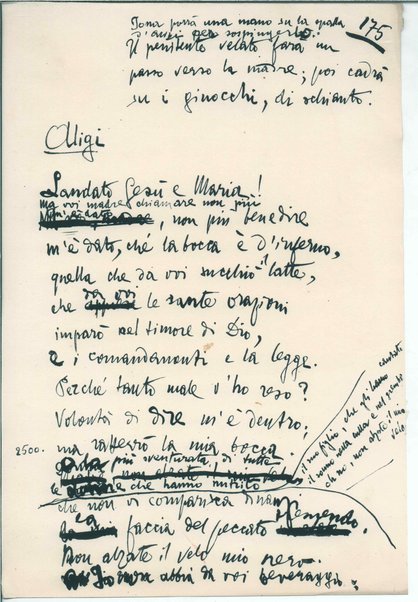 Iona porrà una mano su la spada
175
d'Aligi per sospingerlo.
Il penitente velato farà un
passo verso la madre; poi cadrà
su i ginocchi, di schianto.
Aligi
Laudato Gesù e Maria!
ma voi madre chiamare non più
m'è dato, non più benedire
m'è dato, ché la bocca è d'inferno,
quella che da voi succhiò il latte,
che da voi le sante orazioni
imparò nel timore di Dio,
e i comandamenti e la legge.
Perché tanto male v'ho reso?
Volontà di dire m'è dentro;
2500. ma ratterrò la mia bocca.
più sventurata di tutte
le donne che hanno nutrito
il suo figlio, che gli hanno cantato
il sonno nella culla e nel
oh no, non alzate il mio
velo
che non vi comparisca dinanzi
la faccia del peccato tremendo.
Non alzate il velo mio nero.
abbia da voi beveraggio